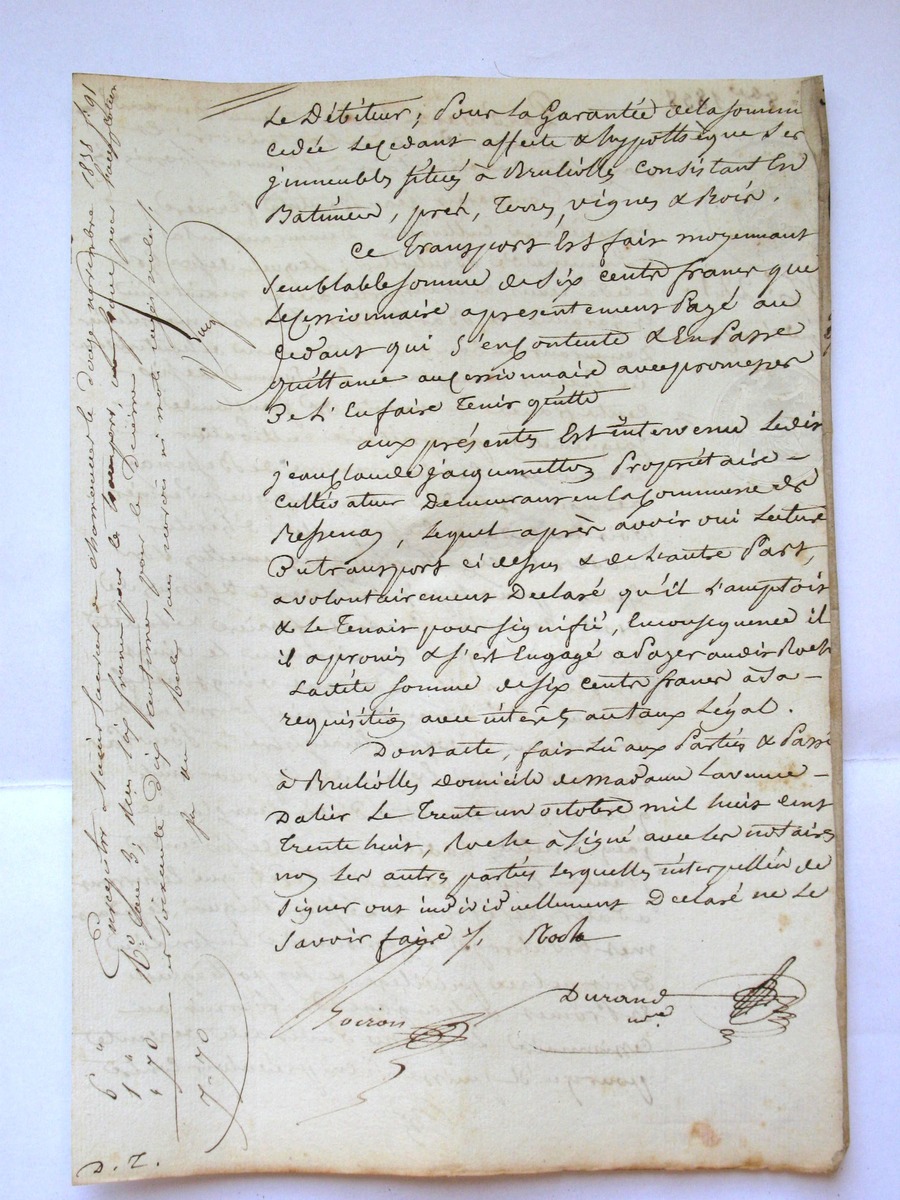 Le Débiteur; Pour la Garantée de la somme
cedée Le cedant affecte & hypothèque Ses
jmmeubles situés à Brulioles Consistant En
Batimens, prés, Terres, vignes & Bois.
Ce Transport Est fait moyennant
Semblable somme de Six cents francs que
Le Cessionnaire a présentement Payé au
Cedant qui S'en Contente & En Passe
quittance au Cessionnaire avec promesse
De L'En faire Tenir quitte
aux présentes Est intervenu Ledit
jean Claude jacquemetton Propriétaire
Cultivateur Demeurant en la Commune de
Lequel après avoir oui Lecture
Du transport ci dessus & de L'autre Part,
a volontairement Declaré qu'il L'amptoit
& Le Tenoit pour Signifié, En conséquence il
il a promis & s'est Engagé a Payer audit Roche
Ladite Somme de six cents francs à Sa
requisition avec intérêts au taux Légal.
Dont acte, fait Lû aux Parties & Passé
à Brulioles Domicile de madame La veuve
Dalier Le Trente un octobre mil huit cent
Trente huit, Roche a Signé avec Les notaires
non Les autres parties Lesquelles interpellées de
Signer ont individuellement Declaré ne Le
Savoir faire ./. Roche
Durand
nre
Enregistré à Saint Laurent de Chamousset le douze novembre 1838 fo 91
Ro Cases 3, Reçu six francs pour le transport, un franc pour l'acceptation
et soixante dix centimes pour le Décime
6 "
1 "
" 70
7 70
D. T.